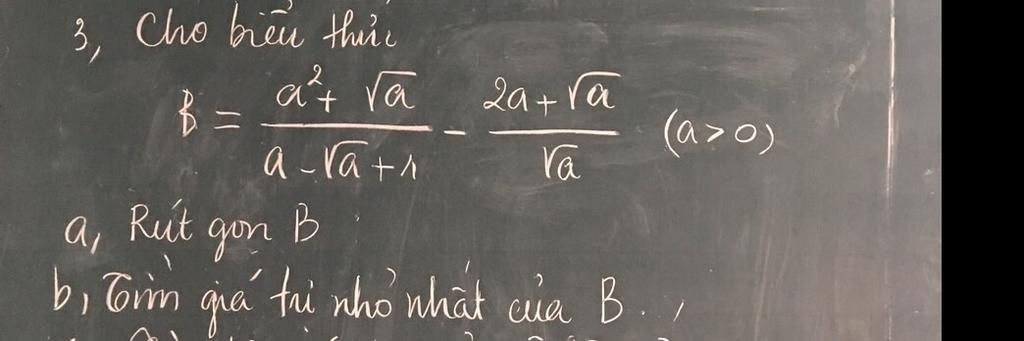 3, Cho biểu thức
B = \frac{a^2 + \sqrt{a}}{a - \sqrt{a} + 1} - \frac{2a + \sqrt{a}}{\sqrt{a}} (a > 0)
a, Rút gọn B
b, Tìm giá trị nhỏ nhất của B.